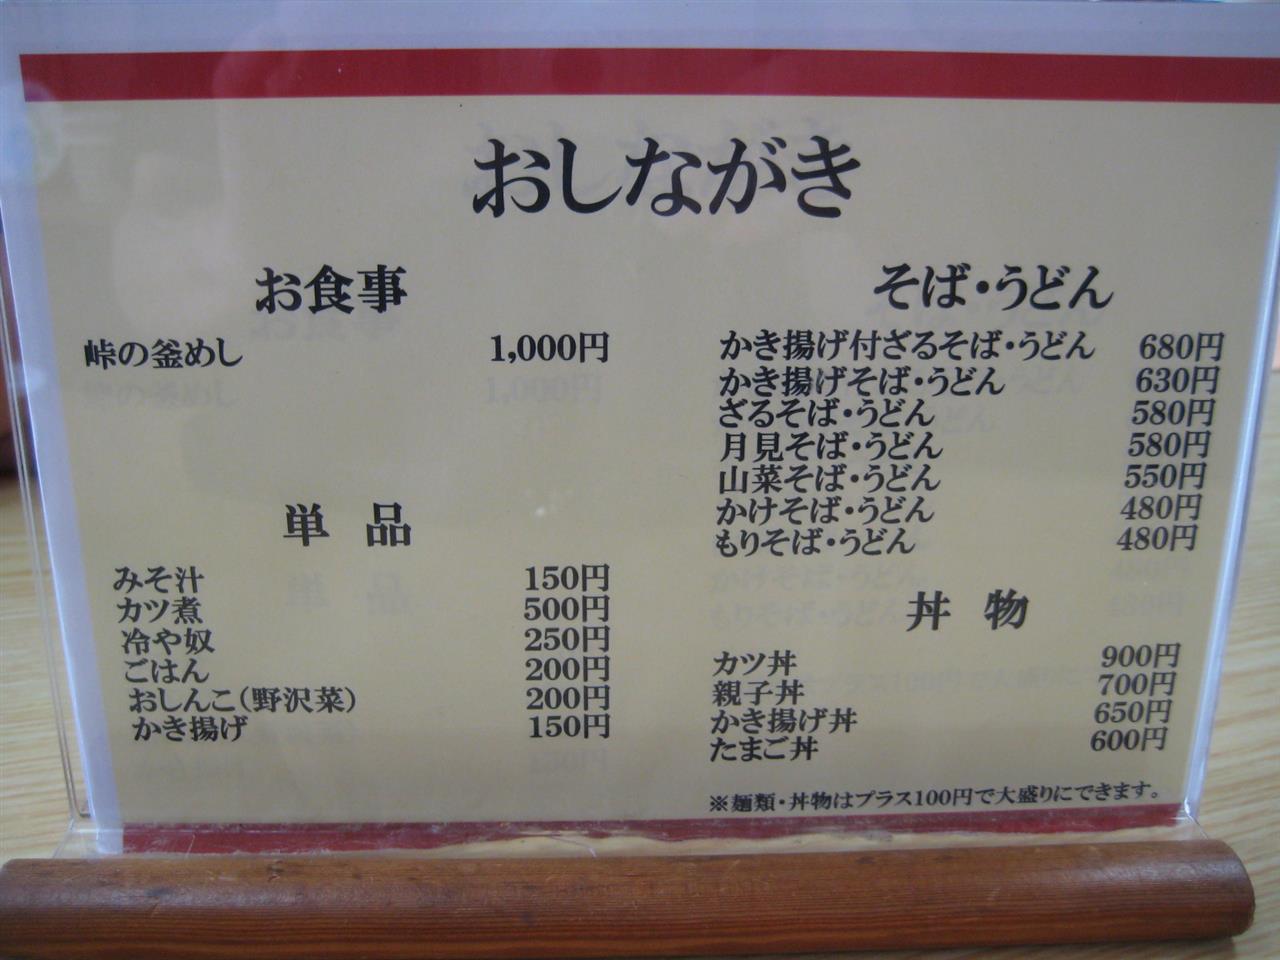 おしながき
お食事
峠の釜めし 1,000円
単 品
みそ汁 150円
カツ煮 500円
冷や奴 250円
ごはん 200円
おしんこ(野沢菜) 200円
かき揚げ 150円
そば・うどん
かき揚げ付ざるそば・うどん 680円
かき揚げそば・うどん 630円
ざるそば・うどん 580円
月見そば・うどん 580円
山菜そば・うどん 550円
かけそば・うどん 480円
もりそば・うどん 480円
丼 物
カツ丼 900円
親子丼 700円
かき揚げ丼 650円
たまご丼 600円
※麺類・丼物はプラス100円で大盛りにできます。